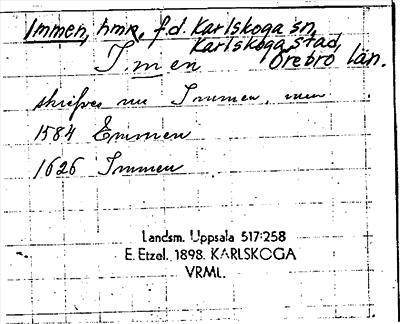 Immen, hmn, f.d. Karlskoga sn,
Karlskoga stad,
Imen Örebro län.
skrifves nu Immen,
1584 Emmen
1626 Immen
Landsm. Uppsala 517:258
E. Etzel. 1898. KARLSKOGA
VRML.